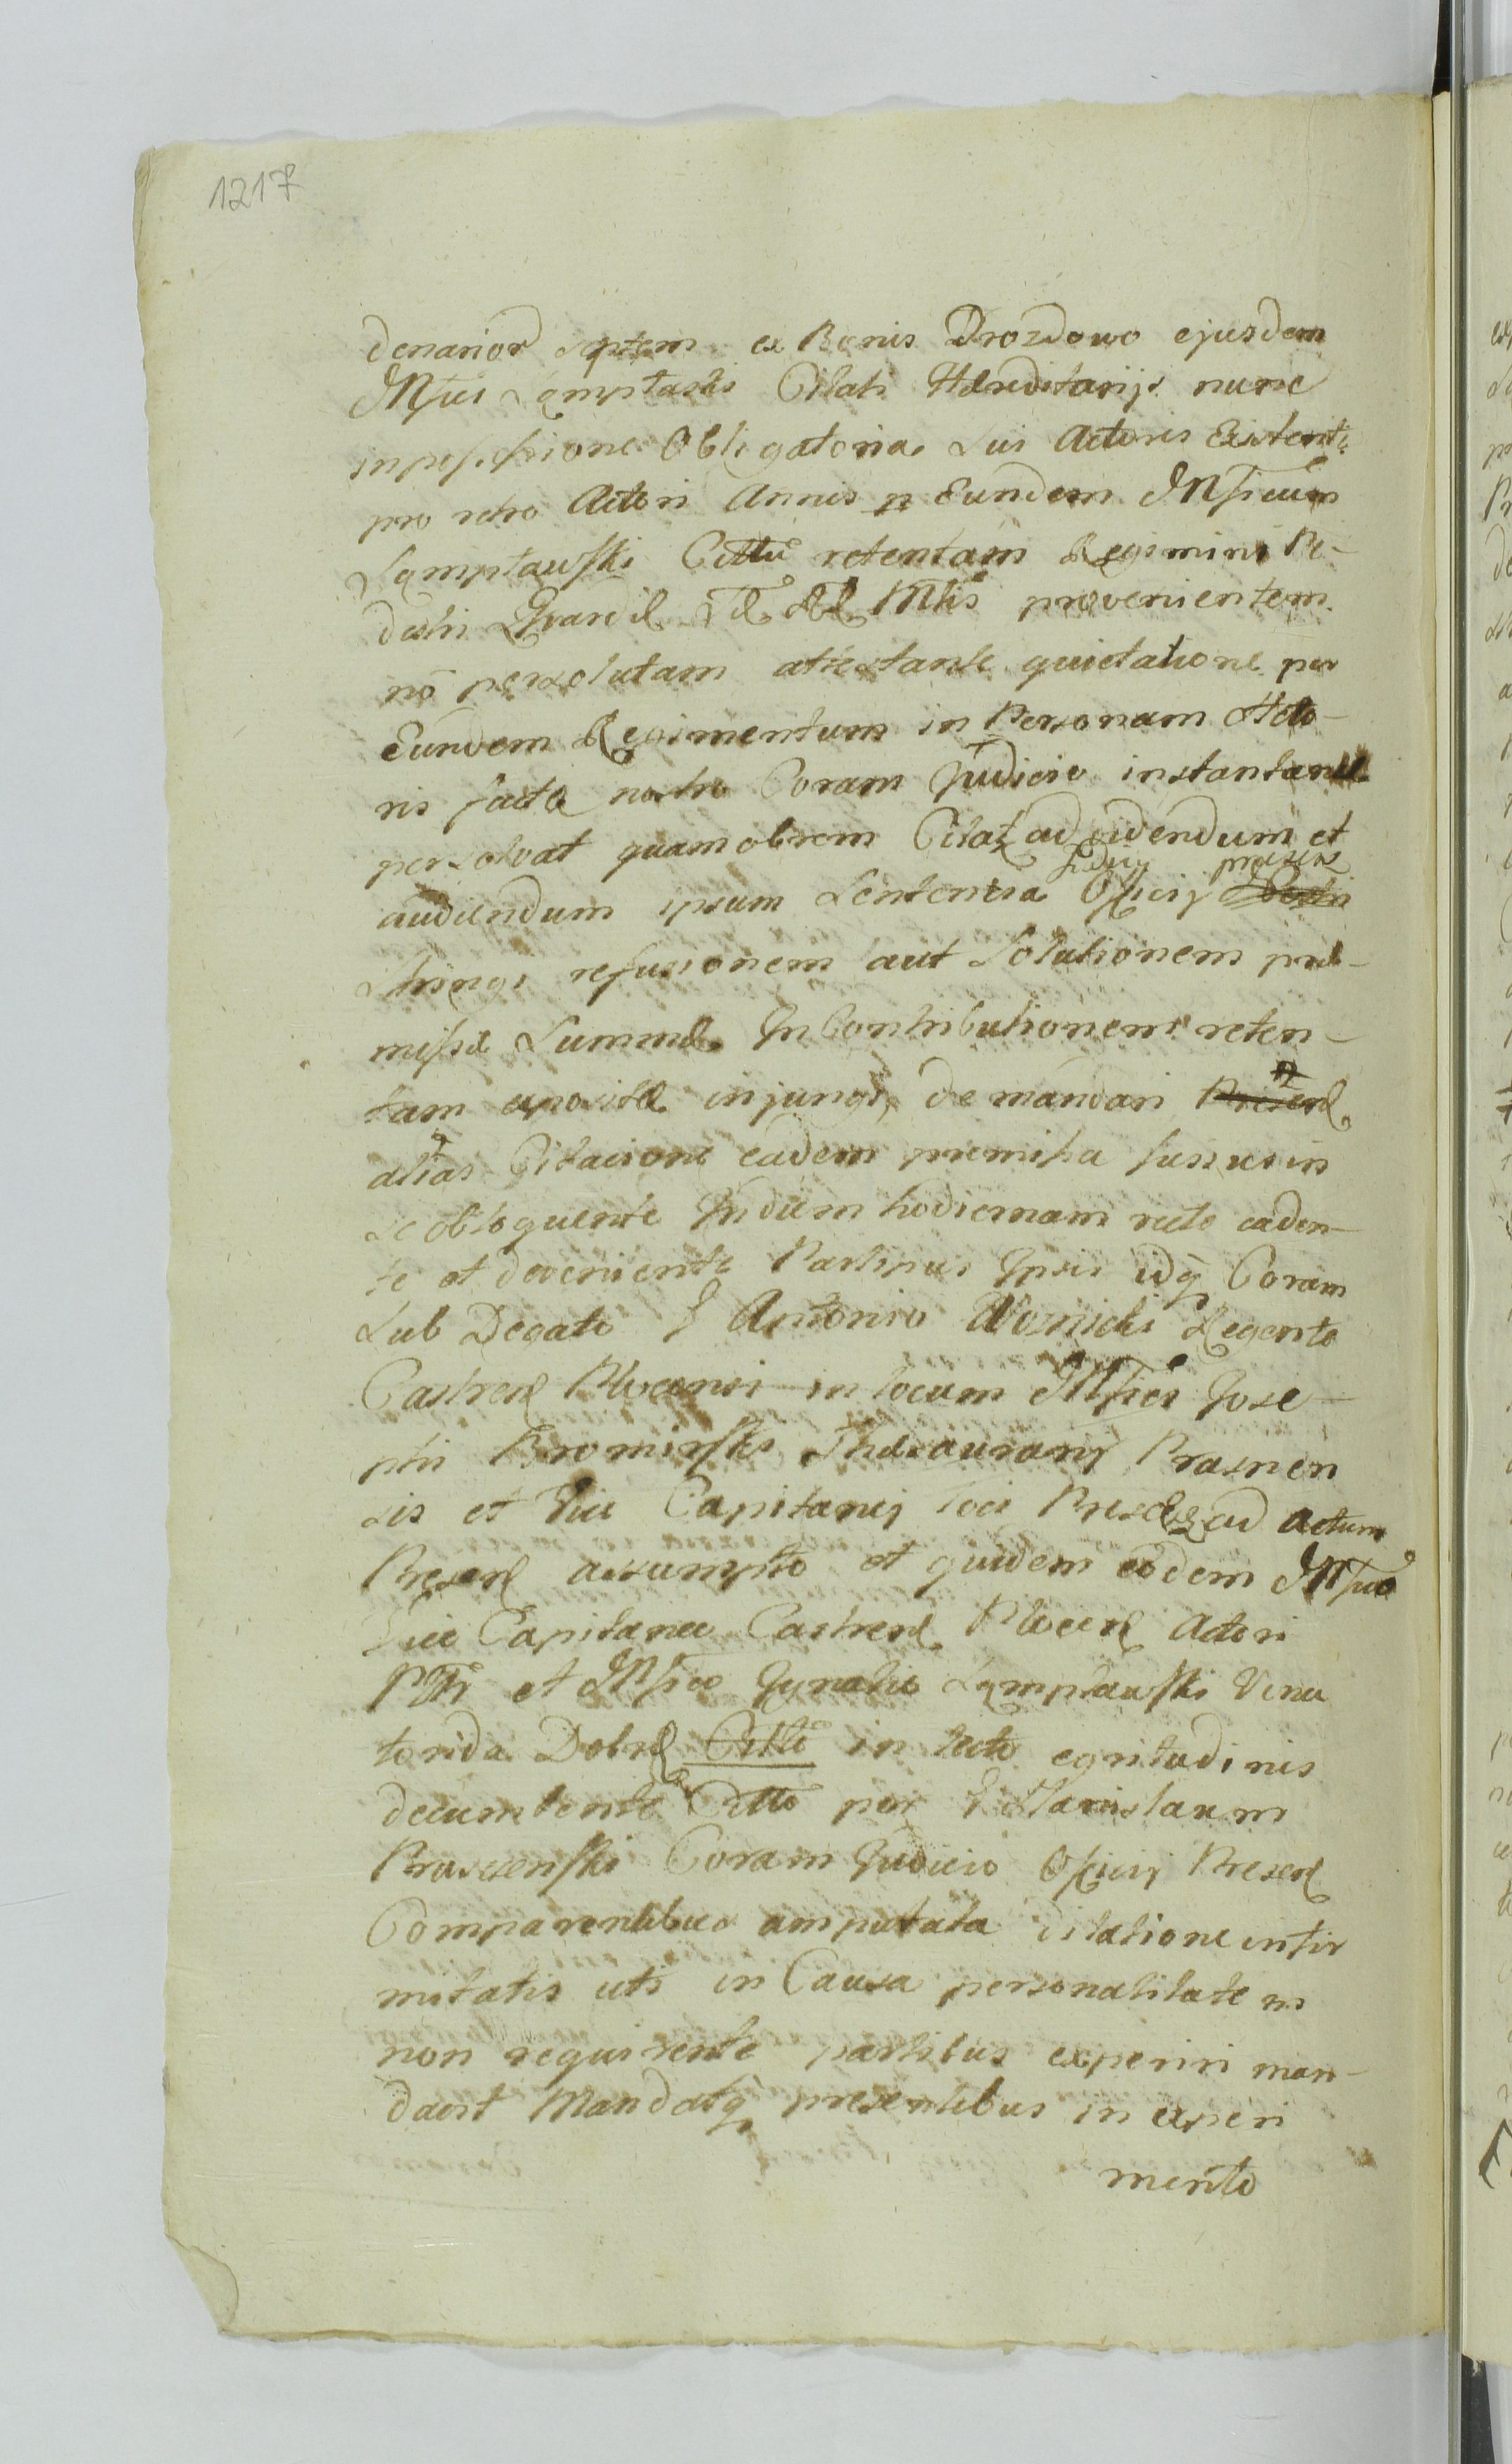 1217
denarior septem ex Bonis Drozdowo ejusdem
Mfici Lemptaski Citati Hereditarijs nunc
in possessione Obligatoria sui Actoris Existent.
pro retro Actori Annis p Eundem Mficum
Lemptauski Cittū retentam Regimini Pe-
destri Gvardiæ Mtis provenientem
nō persolutam attestante quietatione per
Eundem Regimentum in Personam Acto-
ris facta nostro Coram Judicio instantanee
persolvat quamobrem Citat ad videndum et
Judicij præsens
audiendum ipsum Sententia Officij
Stringi refusionem aut Solutionem præ-
missæ Summæ In Contributionem reten-
tam expositæ injungi, demandari Presen
alias Citacione eadem premissa fusius in
se obloquente In diem hodiernam recte caden-
te et deveniente Partibus Ipsis idq Coram
Sub Degato G Antonio Woznicki Regente
Castren Plocensi in locum Mfici Jose-
phi Krominski Thesaurarij Prasnen
sis et Vice Capitanei loci Presen ad actum
Presen assumpto et quidem eodem Mfico
Vice Capitaneo Castren Plocen Actori
Ptti et Mfico Ignatio Lemptauski Vena
torida Dobrz Citto in lecto egritudinis
decumbente Citto per G Stanislaum
Pruszenski Coram Judicio Officij Presen
Comparentibus amputata dilatione infir
mitatis uti in Causa personalitatem
non requirente partibus experiri man-
davit Mandatq presentibus in experi
mento